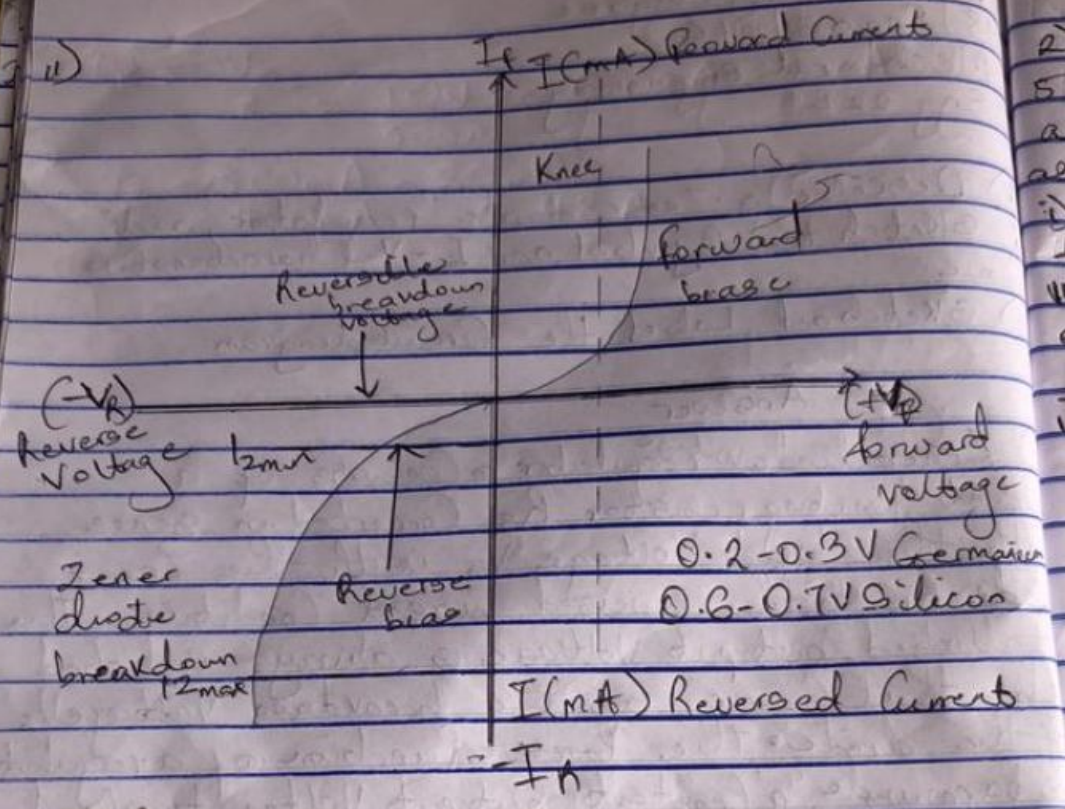 11)
If
I(mA) Forward Currents
Knee
Forward
biase
Reversible
breakdown
voltage
(-VR)
Reverse
Voltage
(+VF)
forward
voltage
Izmin
0.2-0.3V
0.6-0.7V Silicon
Zener
diode
breakdown
Izmax
Reverse
bias
I(mA) Reversed Currents
-IR
2)
5
a
as
i)